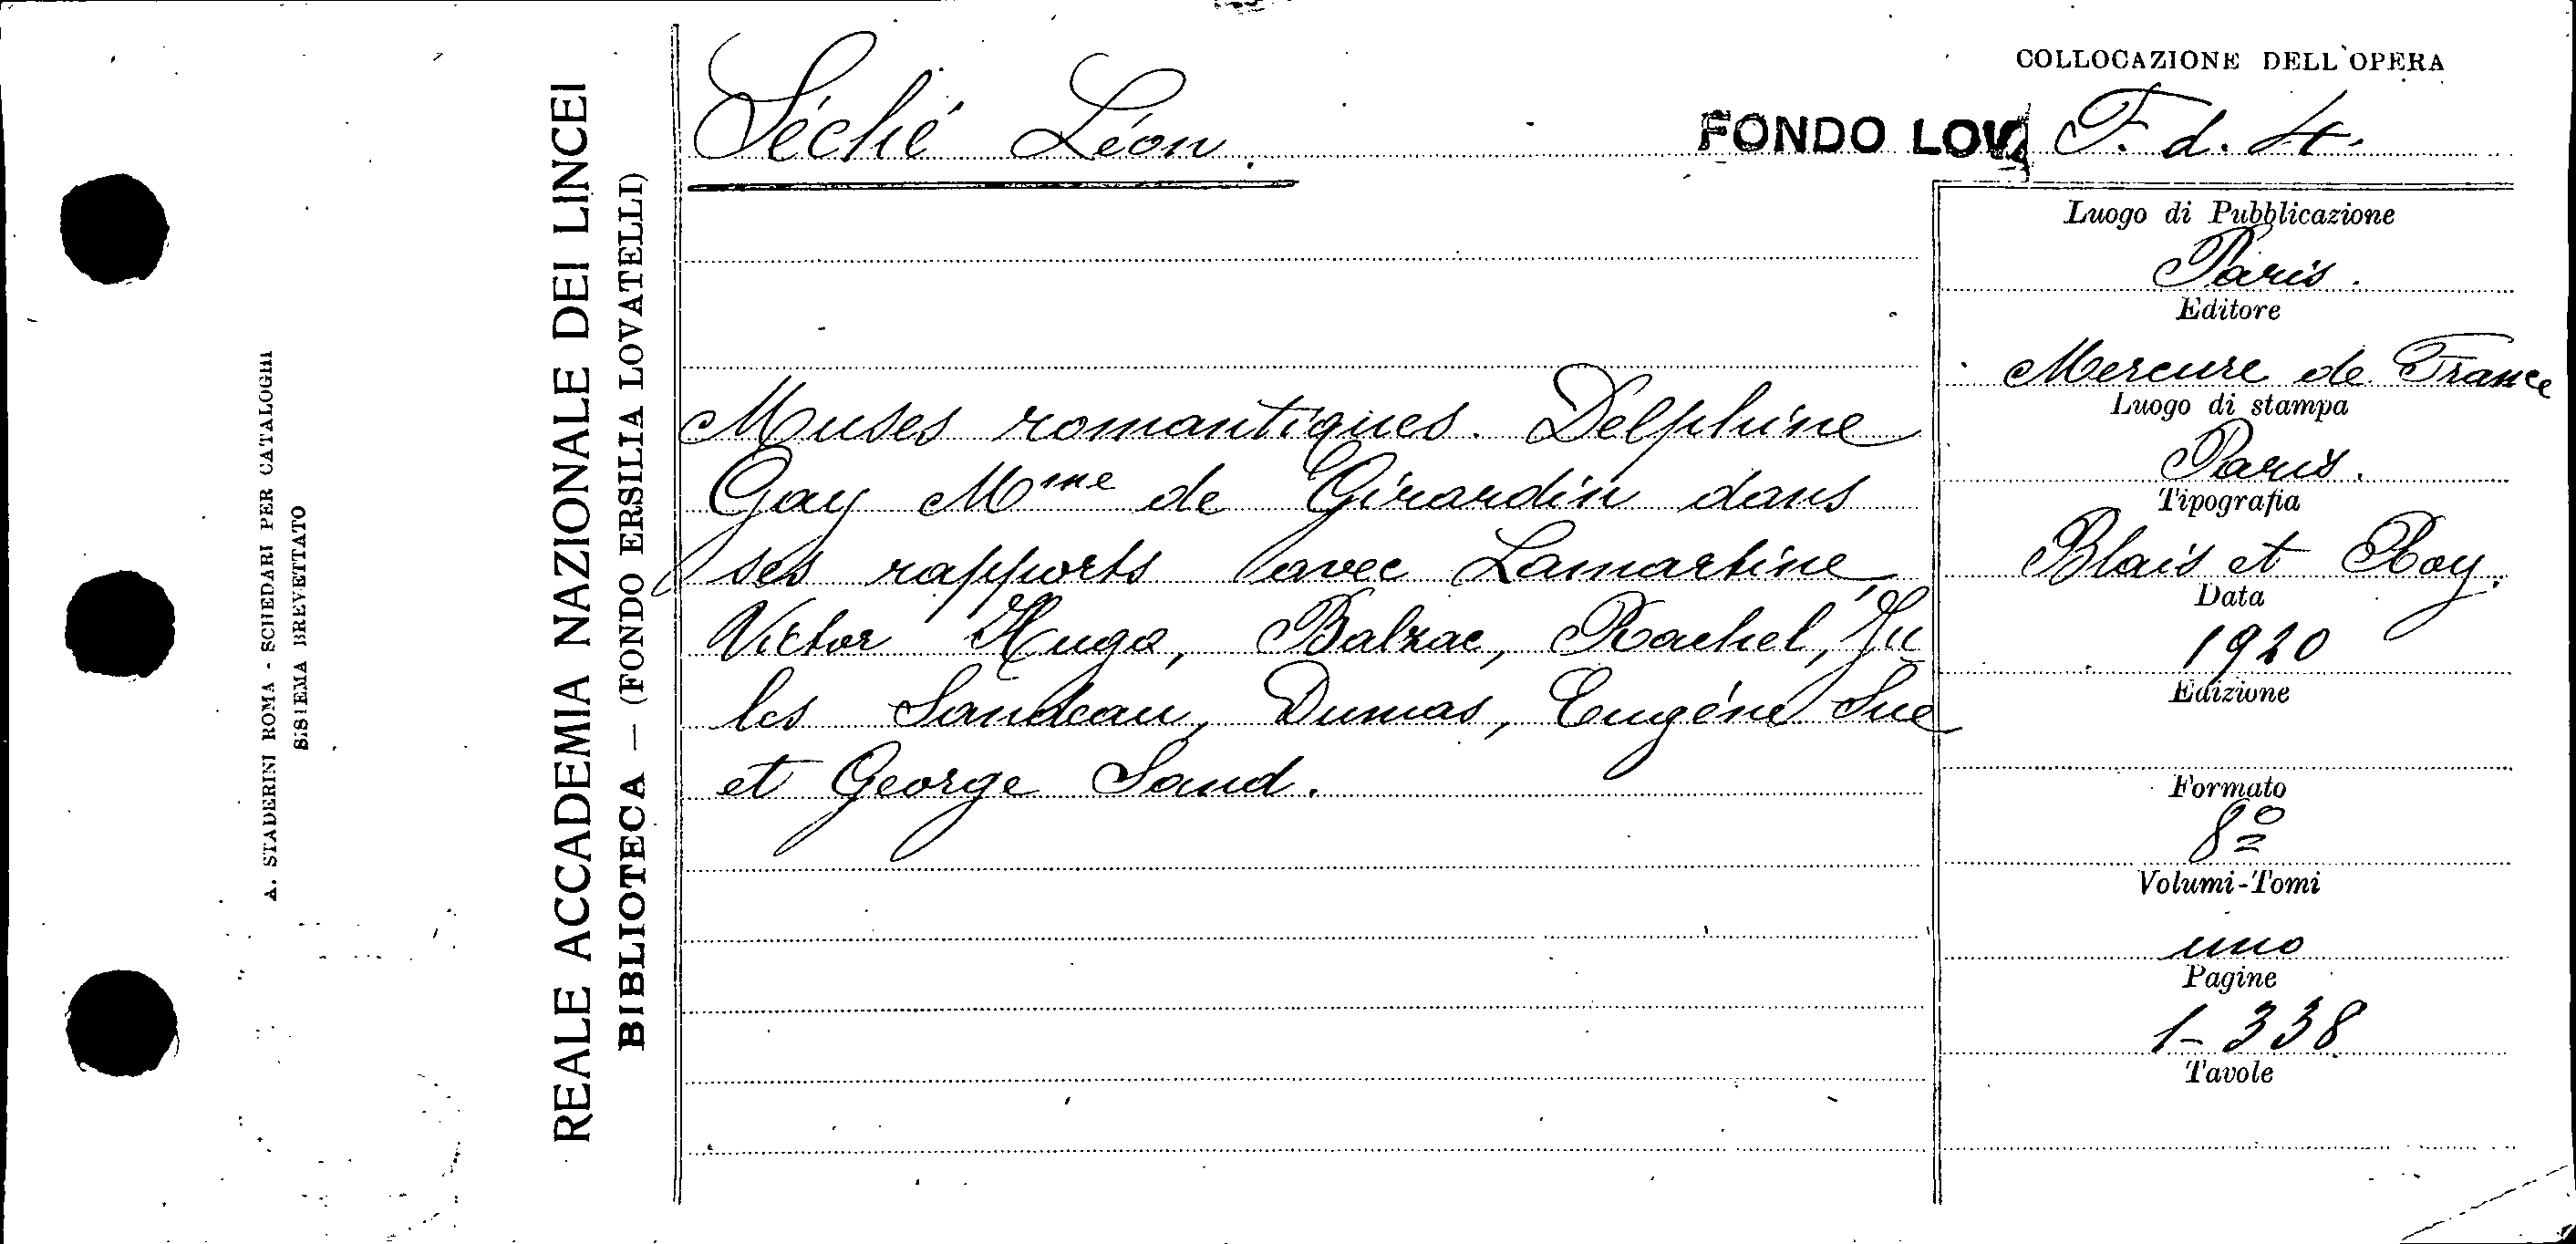 A. STADERINI ROMA - SCHEDARI PER CATALOGHI
SISTEMA BREVETTATO
REALE ACCADEMIA NAZIONALE DEI LINCEI
BIBLIOTECA — (FONDO ERSILIA LOVATELLI)
Séché Léon.
COLLOCAZIONE DELL'OPERA
FONDO LOV F. d. 4.
Muses romantiques. Delphine
Gay Mme de Girardin dans
ses rapports avec Lamartine,
Victor Hugo, Balzac, Rachel, Ju
les Sandeau, Dumas, Eugéne Sue
et George Sand.
Luogo di Pubblicazione
Paris.
Editore
Mercure de France
Luogo di stampa
Paris.
Tipografia
Blais et Roy.
Data
1910
Edizione
Formato
8º
Volumi-Tomi
uno
Pagine
1-338
Tavole